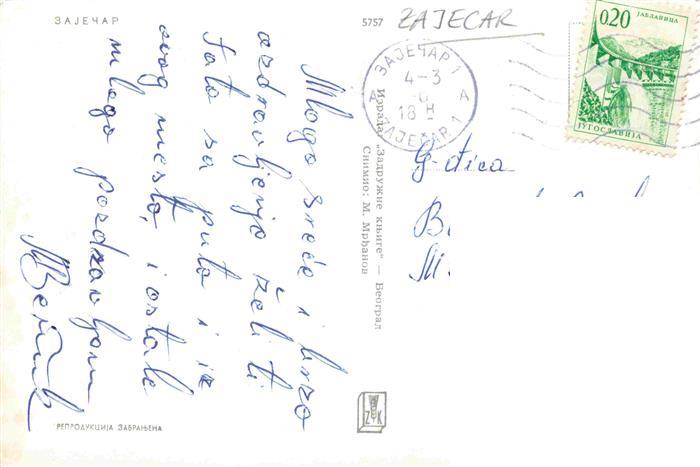 ЗАЈЕЧАР
5757
ZAJEČAR
ЗАЈЕЧАР 1
4-3
18 H
A A
ЗАЈЕЧАР 1
0.20
ЈАБЛАНИЦА
ЈУГОСЛАВИЈА
Mnogo sreće i brzo
ozdravljenje želi ti
Tata sa puta i iz
ovog mesta, i ostale
mnogo pozdravljam
Израда: „Задружне књиге“ — Београд
Снимио: М. Мрђанов
G-đica
РЕПРОДУКЦИЈА ЗАБРАЊЕНА